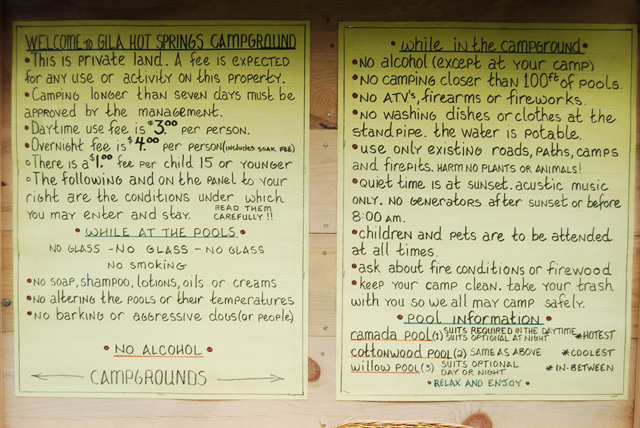 WELCOME TO GILA HOT SPRINGS CAMPGROUND
• This is private land. A fee is expected
for any use or activity on this property.
• Camping longer than seven days must be
approved by the management.
• Daytime use fee is $3.00 per person.
• Overnight fee is $4.00 per person (includes soak fee)
• There is a $1.00 fee per child 15 or younger
• The following and on the panel to your
right are the conditions under which
you may enter and stay. READ THEM
CAREFULLY!!
• WHILE AT THE POOLS •
NO GLASS - NO GLASS - NO GLASS
NO SMOKING
• NO SOAP, SHAMPOO, LOTIONS, OILS OR CREAMS
• NO ALTERING THE POOLS OR THEIR TEMPERATURES
• NO BARKING OR AGGRESSIVE DOGS (OR PEOPLE)
• NO ALCOHOL •
← CAMPGROUNDS →
• While in the campground •
• NO alcohol (except at your camp)
• NO camping closer than 100ft of pools.
• NO ATV's, firearms or fireworks.
• NO washing dishes or clothes at the
standpipe. the water is potable.
• use only existing roads, paths, camps
and firepits. HARM NO PLANTS OR ANIMALS!
• Quiet time is at sunset. acustic music
only. No generators after sunset or before
8:00 am.
• children and pets are to be attended
at all times.
• ask about fire conditions or firewood
• keep your camp clean. take your trash
with you so we all may camp safely.
• POOL INFORMATION •
ramada pool (1) SUITS REQUIRED IN THE DAYTIME
SUITS OPTIONAL AT NIGHT *HOTTEST
cottonwood pool (2) SAME AS ABOVE *COOLEST
willow pool (3) SUITS OPTIONAL
DAY OR NIGHT *IN-BETWEEN
• RELAX AND ENJOY •